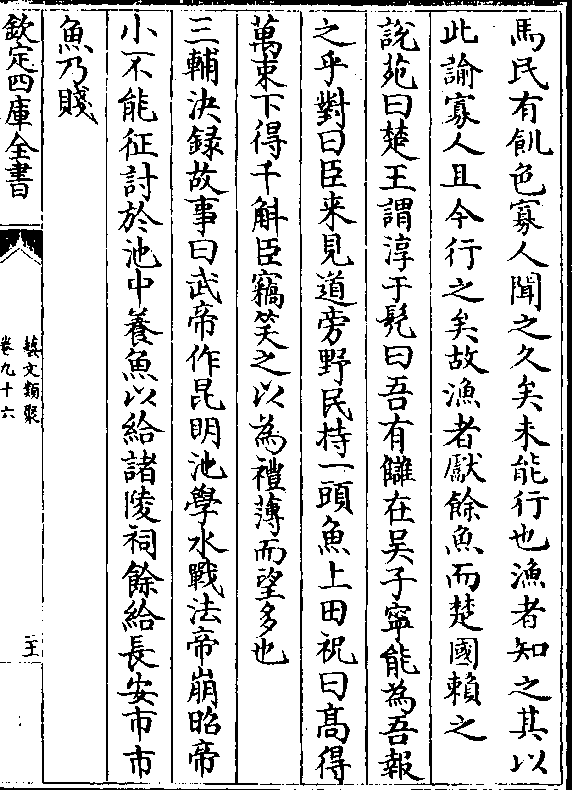 馬民有飢色寡人聞之久矣未能行也漁者知之其以
此諭寡人且今行之矣故漁者獻餘魚而楚國賴之
說苑曰楚王謂淳于髠曰吾有讎在吴子寧能為吾報
之乎對曰臣来見道旁野民持一頭魚上田祝曰髙得
萬束下得千斛臣竊笑之以為禮薄而望多也
三輔决録故事曰武帝作昆明池學水戰法帝崩昭帝
小不能征討於池中養魚以給諸陵祠餘給長安市市
魚乃賤
欽定四庫全書
藝文類聚
卷九十六